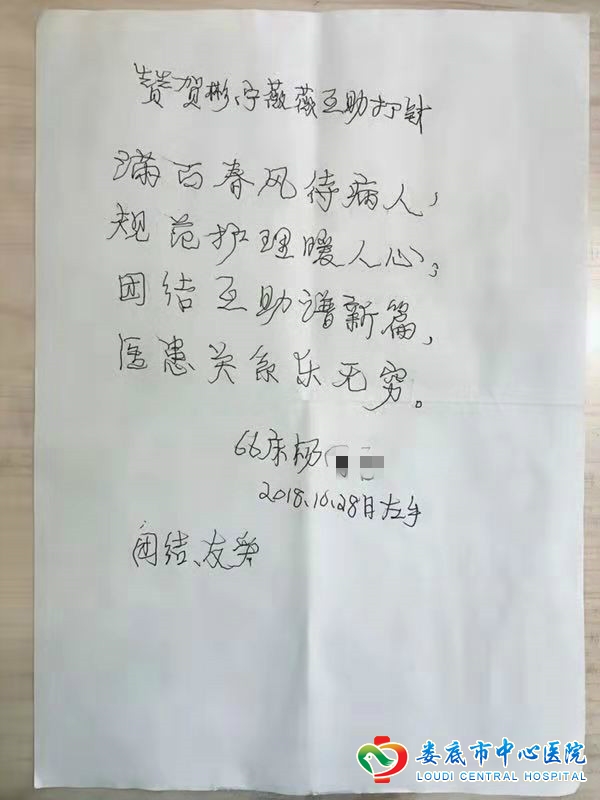 赞贺彬、宁薇薇互助打针
满面春风待病人，
规范护理暖人心，
团结互助谱新篇，
医患关系乐无穷。
66床杨
2018.10.28日左手
团结、友爱
娄底市中心医院
LOUDI CENTRAL HOSPITAL